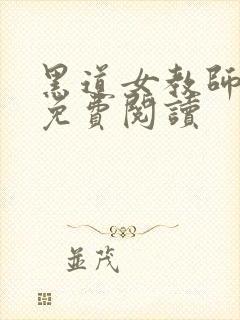 黑道女教師
免費閱讀
並茂